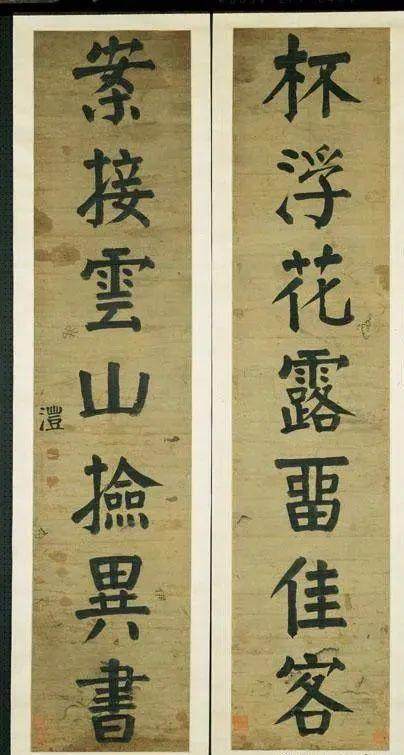 杯浮花露畱佳客
案接雲山撿異書
澧